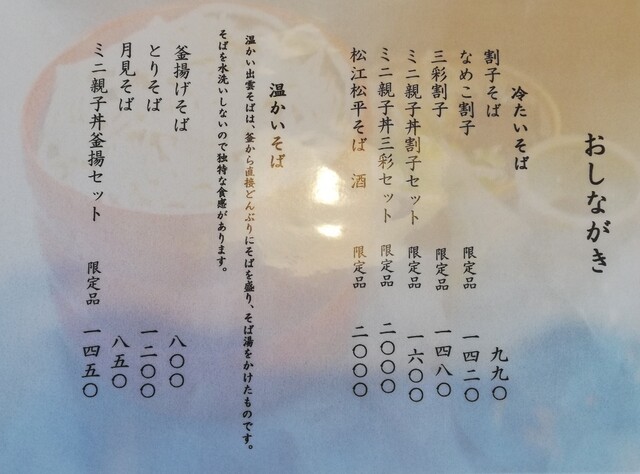 おしながき
冷たいそば
割子そば 九九〇
なめこ割子 限定品 一四二〇
三彩割子 限定品 一四八〇
ミニ親子丼割子セット 限定品 一六〇〇
ミニ親子丼三彩セット 限定品 二〇〇〇
松江松平そば 酒 限定品 二〇〇〇
温かいそば
温かい出雲そばは、釜から直接どんぶりにそばを盛り、そば湯をかけたものです。
そばを水洗いしないので独特な食感があります。
釜揚げそば 八〇〇
とりそば 一二〇〇
月見そば 八五〇
ミニ親子丼釜揚セット 限定品 一四五〇